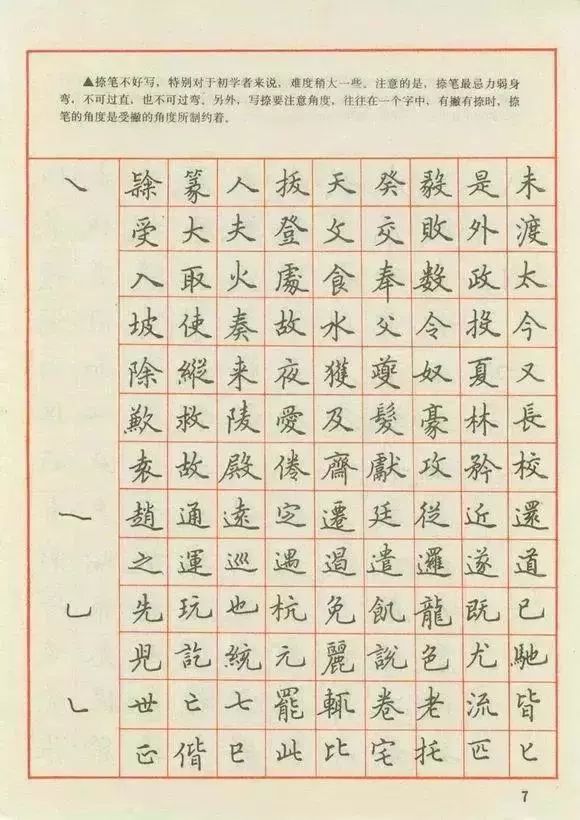 ▲捺笔不好写，特别对于初学者来说，难度稍大一些。注意的是，捺笔最忌力弱身
弯，不可过直，也不可过弯。另外，写捺要注意角度，往往在一个字中，有撇有捺时，捺
笔的角度是受撇的角度所制约着。
㇏ 篆 人 拔 天 癸 毅 是 未
受 大 夫 登 文 交 敗 外 渡
入 取 火 處 食 奉 数 政 太
坡 使 奏 故 水 父 令 投 今
除 縱 来 夜 獲 夔 奴 夏 又
歉 救 陵 愛 及 髮 豪 林 長
袁 故 殿 倦 齋 獻 攻 矜 校
趙 通 遠 定 遷 廷 從 近 還
之 運 巡 遇 遏 遣 邏 遂 道
乚 先 玩 也 杭 免 飢 龍 既 已
兕 訖 統 元 麗 說 色 尤 馳
乚 世 亡 七 罷 輒 卷 老 流 皆
正 偕 巳 此 比 宅 托 匹 匕
7